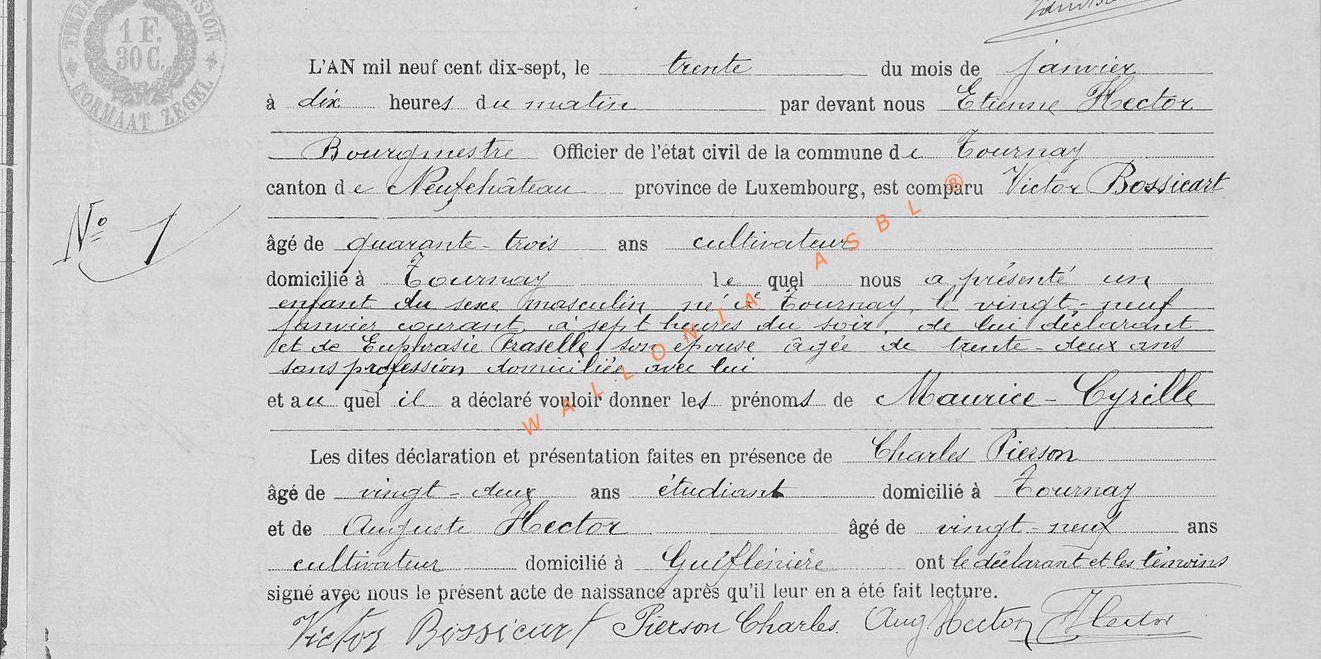 TIMBRE DIMENSION
1 F.
30 C.
FORMAAT ZEGEL
L'AN mil neuf cent dix-sept, le trente du mois de janvier
à dix heures du matin par devant nous Etienne Hector
Bourgmestre Officier de l'état civil de la commune de Tournay
canton de Neufchâteau province de Luxembourg, est comparu Victor Bossicart
Nº 1
âgé de quarante-trois ans cultivateur
domicilié à Tournay lequel nous a présenté un
enfant du sexe masculin, né à Tournay, le vingt-neuf
janvier courant, à sept heures du soir, de lui déclarant
et de Euphrasie son épouse âgée de trente-deux ans
sans profession domiciliée avec lui
et auquel il a déclaré vouloir donner les prénoms de Maurice-Cyrille
Les dites déclaration et présentation faites en présence de Charles Pierson
âgé de vingt-deux ans étudiant domicilié à Tournay
et de Auguste Hector âgé de vingt-neuf ans
cultivateur domicilié à ont le déclarant et les témoins
signé avec nous le présent acte de naissance après qu'il leur en a été fait lecture.
Victor Bossicart Pierson Charles. Aug Hector E Hector
WALLONIA ASBL ®